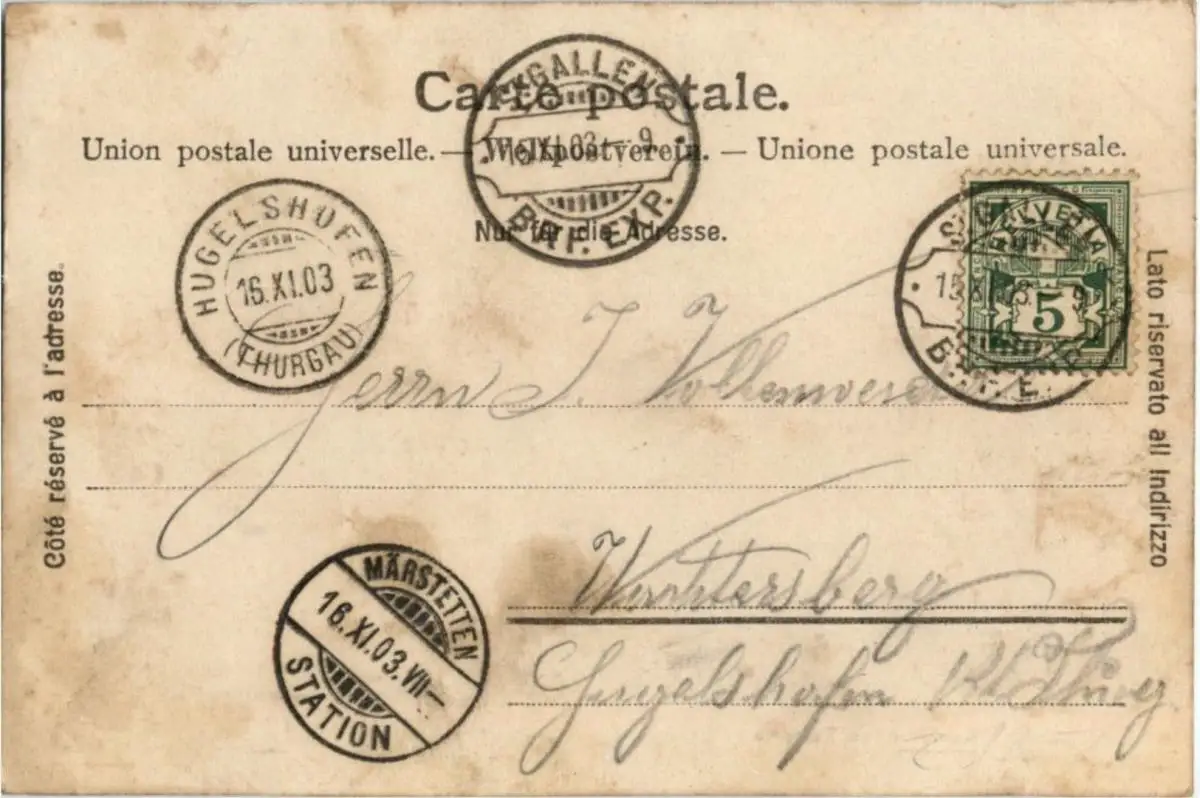 Carte postale.
Union postale universelle. — Weltpostverein. — Unione postale universale.
Nur für die Adresse.
ST. GALLEN
16.XI.03 – 9
BRF. EXP.
HUGELSHOFEN
16.XI.03
(THURGAU)
HELVETIA
5
Côté réservé à l'adresse.
Lato riservato all Indirizzo
Herrn J.
MÄRSTETTEN
16.XI.03.VII–
STATION
Hugelshofen Kt. Thurg